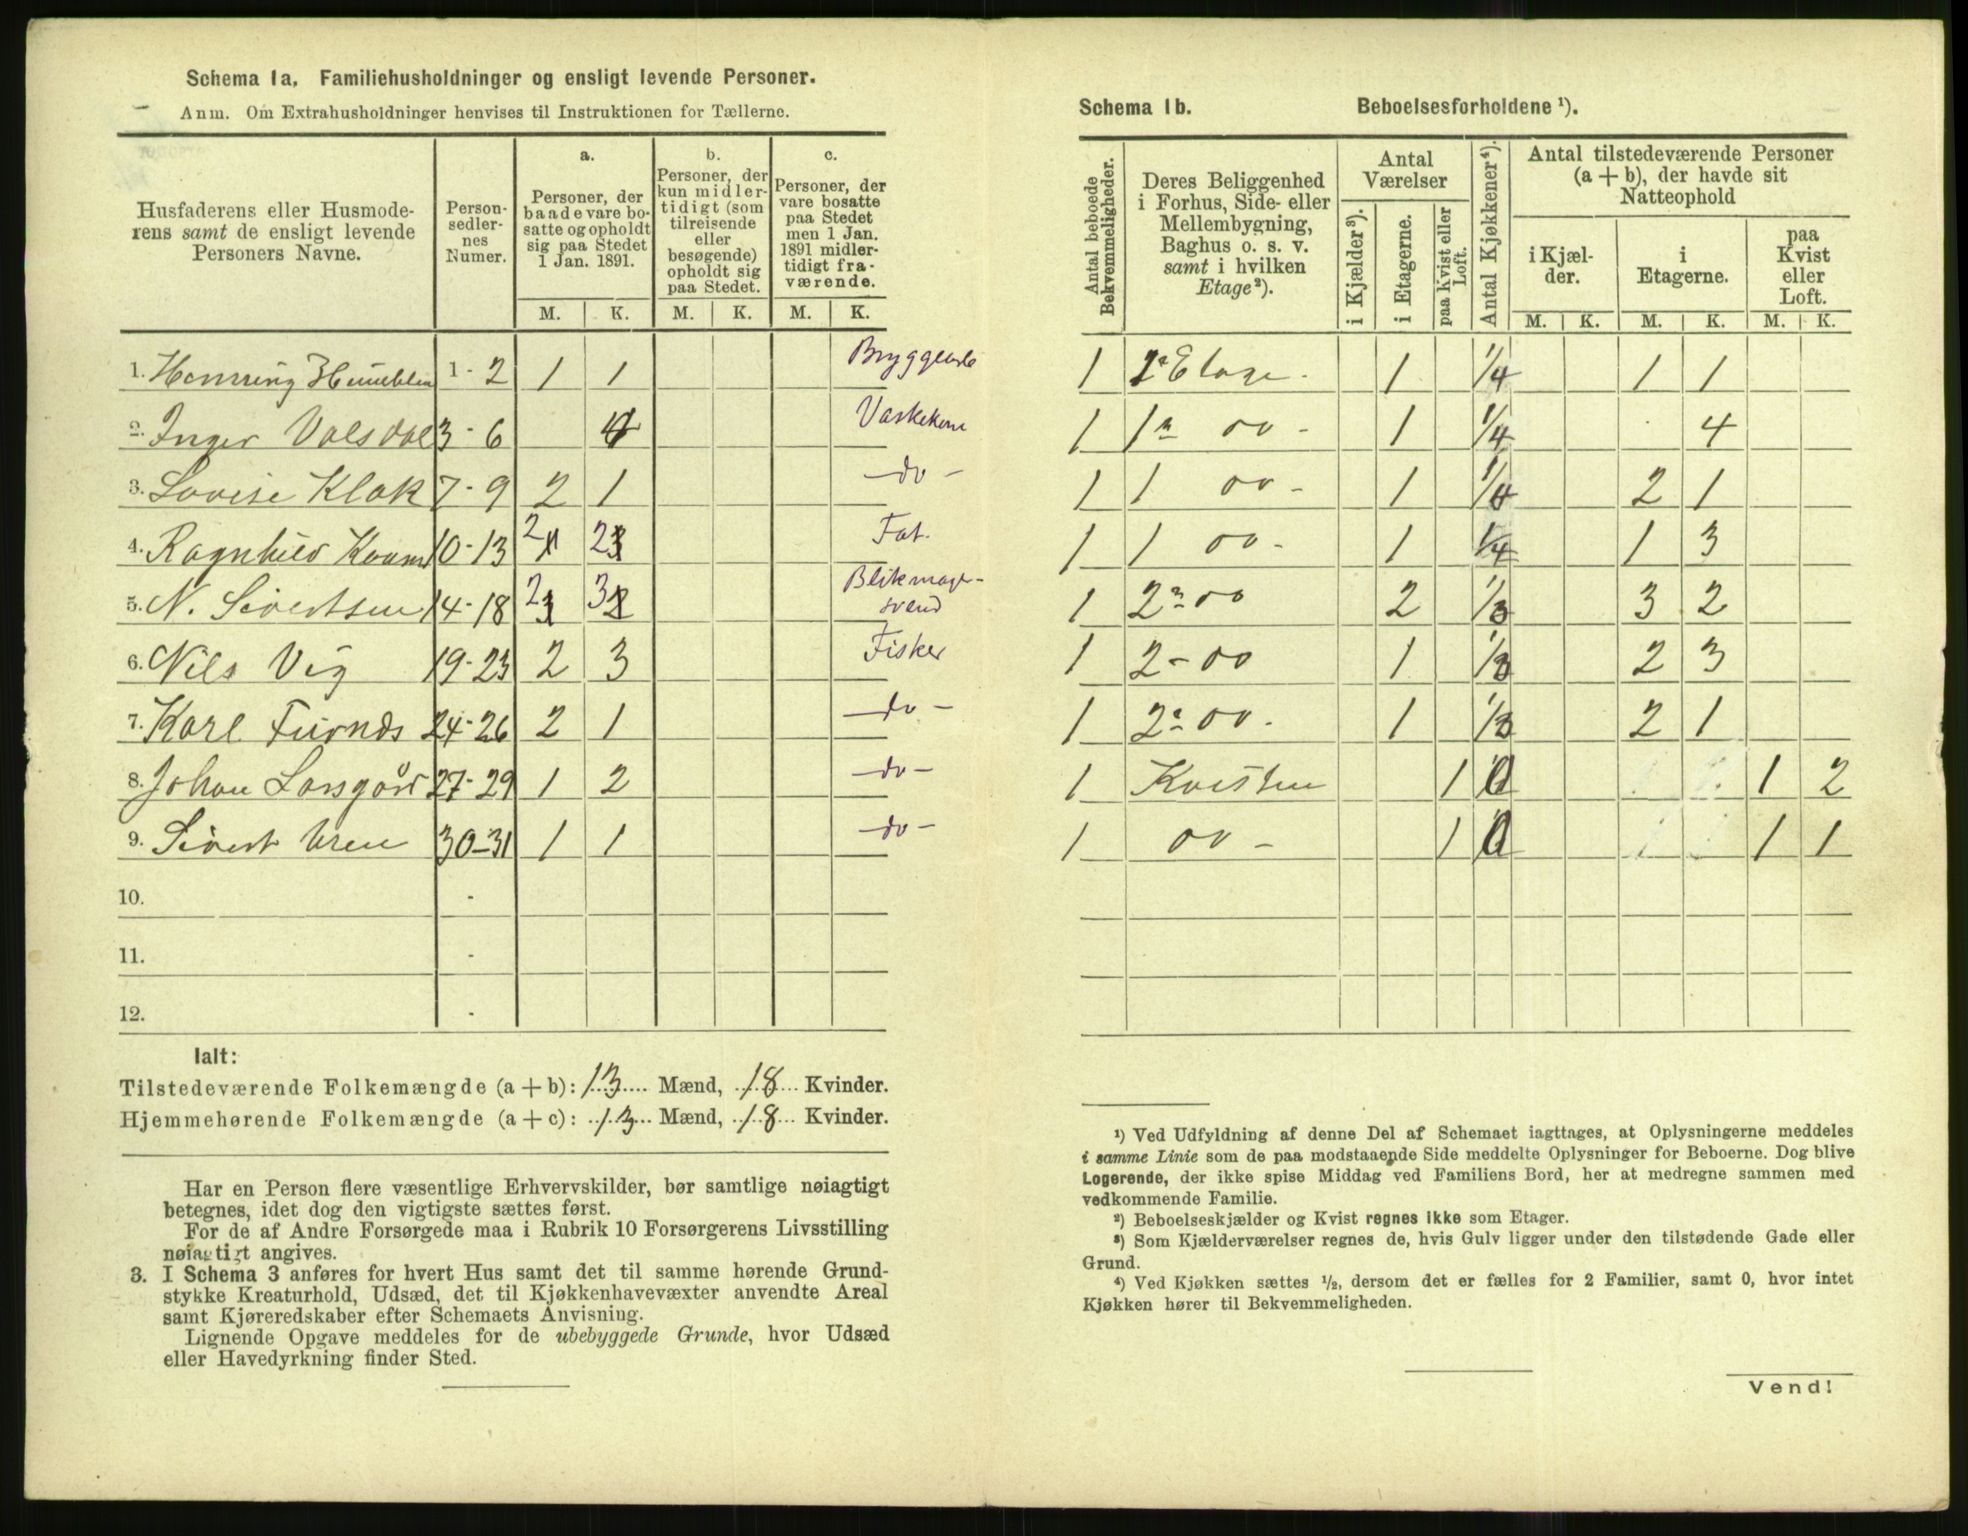 Schema 1a. Familiehusholdninger og ensligt levende Personer.
Anm. Om Extrahusholdninger henvises til Instruktionen for Tællerne.
Husfaderens eller Husmode-
rens samt de ensligt levende
Personers Navne.
Person-
sedler-
nes
Numer.
a.
Personer, der
baade vare bo-
satte og opholdt
sig paa Stedet
1 Jan. 1891.
b.
Personer, der
kun midler-
tidigt (som
tilreisende
eller
besøgende)
opholdt sig
paa Stedet.
c.
Personer, der
vare bosatte
paa Stedet
men 1 Jan.
1891 midler-
tidigt fra-
værende.
M. K. M. K. M. K.
1. Henning 1 - 2 1 1
2. Inger Valsdal 3 - 6 4 Vaskekone
3. Lovise Klok 7 - 9 2 1 do -
4. Ragnhild Kvam 10 - 13 2 2 Fat.
5. N. Sivertsen 14 - 18 2 3 Blikmager-
svend
6. Nils Vig 19 - 23 2 3 Fisker
7. Karl 24 - 26 2 1 do -
8. Johan Larsgård 27 - 29 1 2 do -
9. Sivert Uren 30 - 31 1 1 do -
10. -
11. -
12. -
Ialt:
Tilstedeværende Folkemængde (a + b): 13 Mænd, 18 Kvinder.
Hjemmehørende Folkemængde (a + c): 13 Mænd, 18 Kvinder.
Har en Person flere væsentlige Erhvervskilder, bør samtlige nøiagtigt
betegnes, idet dog den vigtigste sættes først.
For de af Andre Forsørgede maa i Rubrik 10 Forsørgerens Livsstilling
nøiagtigt angives.
3. I Schema 3 anføres for hvert Hus samt det til samme hørende Grund-
stykke Kreaturhold, Udsæd, det til Kjøkkenhavevæxter anvendte Areal
samt Kjøreredskaber efter Schemaets Anvisning.
Lignende Opgave meddeles for de ubebyggede Grunde, hvor Udsæd
eller Havedyrkning finder Sted.
Schema 1b. Beboelsesforholdene ¹).
Antal beboede
Bekvemmeligheder.
Deres Beliggenhed
i Forhus, Side- eller
Mellembygning,
Baghus o. s. v.
samt i hvilken
Etage²).
Antal
Værelser
i Kjælder³).
i Etagerne.
paa Kvist eller
Loft.
Antal Kjøkkener⁴).
Antal tilstedeværende Personer
(a + b), der havde sit
Natteophold
i Kjæl-
der.
i
Etagerne.
paa
Kvist
eller
Loft.
M. K. M. K. M. K.
1 Etage - 1 1/4 1 1
1 1 do - 1 1/4 4
1 1 do - 1 1/4 2 1
1 1 do - 1 1/4 1 3
1 2 do 2 1/3 3 2
1 2 - do 1 1/3 2 3
1 2 do - 1 1/3 2 1
1 Kvisten 1 0 1 2
1 do - 1 0 1 1
¹) Ved Udfyldning af denne Del af Schemaet iagttages, at Oplysningerne meddeles
i samme Linie som de paa modstaaende Side meddelte Oplysninger for Beboerne. Dog blive
Logerende, der ikke spise Middag ved Familiens Bord, her at medregne sammen med
vedkommende Familie.
²) Beboelseskjælder og Kvist regnes ikke som Etager.
³) Som Kjælderværelser regnes de, hvis Gulv ligger under den tilstødende Gade eller
Grund.
⁴) Ved Kjøkken sættes ½, dersom det er fælles for 2 Familier, samt 0, hvor intet
Kjøkken hører til Bekvemmeligheden.
Vend!